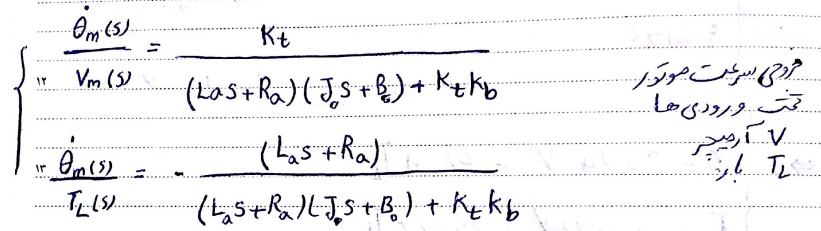 θ̇m(s)/Vm(s) = Kt/((Las+Ra)(J₀s+B₀)+Ktkb)
θ̇m(s)/TL(s) = - (Las+Ra)/((Las+Ra)(J₀s+B₀)+Ktkb)
خروجی سرعت موتور
تحت ورودی‌ها
V آرمیچر
TL بار
۱۲
۱۳